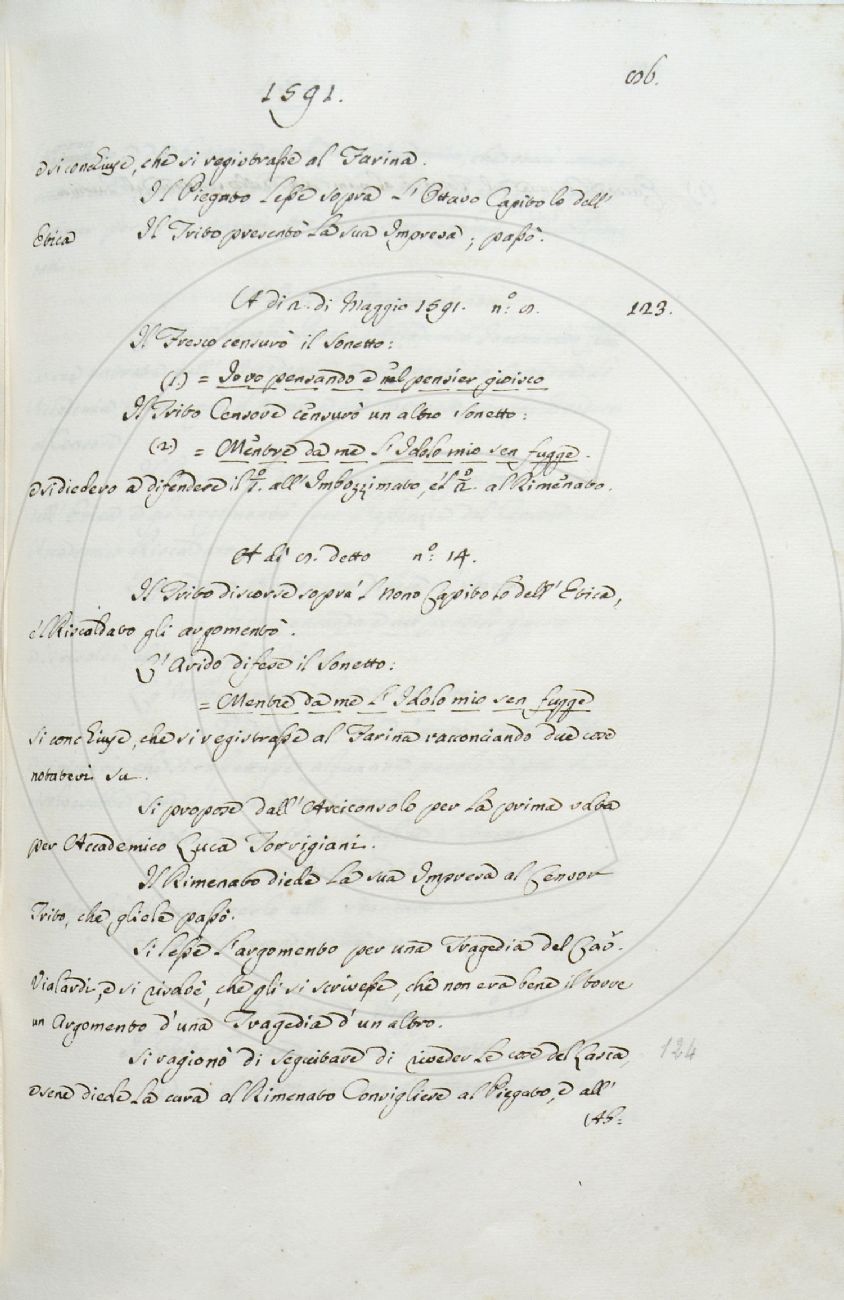 1591.
e si conchiuse, che si registrasse al Farina.
Il Piegato lesse sopra l'Ottavo Capitolo dell'
Etica Il Trito presentò la sua Impresa; passò.
A di 2. di Maggio 1591. n.º
123.
Il Fresco censurò il sonetto:
(1) = Io vo pensando e nel pensier gioisco
Il Trito Censore censurò un altro sonetto:
(2) = Mentre da me l'Idolo mio sen fugge.
e si diedero a difendere il 1.º all'Imbozzimato, e'l 2.º al Rimenato.
A dì detto n.º 14.
Il Trito discorse sopra'l nono Capitolo dell'Etica,
e'l Riscaldato gli argomentò.
L'Arido difese il sonetto:
= Mentre da me l'Idolo mio sen fugge
si conchiuse, che si registrasse al Farina racconciando due cose
notatevi su.
Si propose dall'Arciconsolo per la prima volta
per Accademico Luca Torrigiani.
Il Rimenato diede la sua Impresa al Censor
Trito, che gliele passò.
Si lesse l'argomento per una Tragedia del Cav.
Vialardi, e si risolvè, che gli si scrivesse, che non era bene il torre
un Argomento d'una Tragedia d'un altro.
Si ragionò di seguitare di riveder le cose del Lasca,
124
e sene diede la cura al Rimenato Consigliere al Piegato, e all'